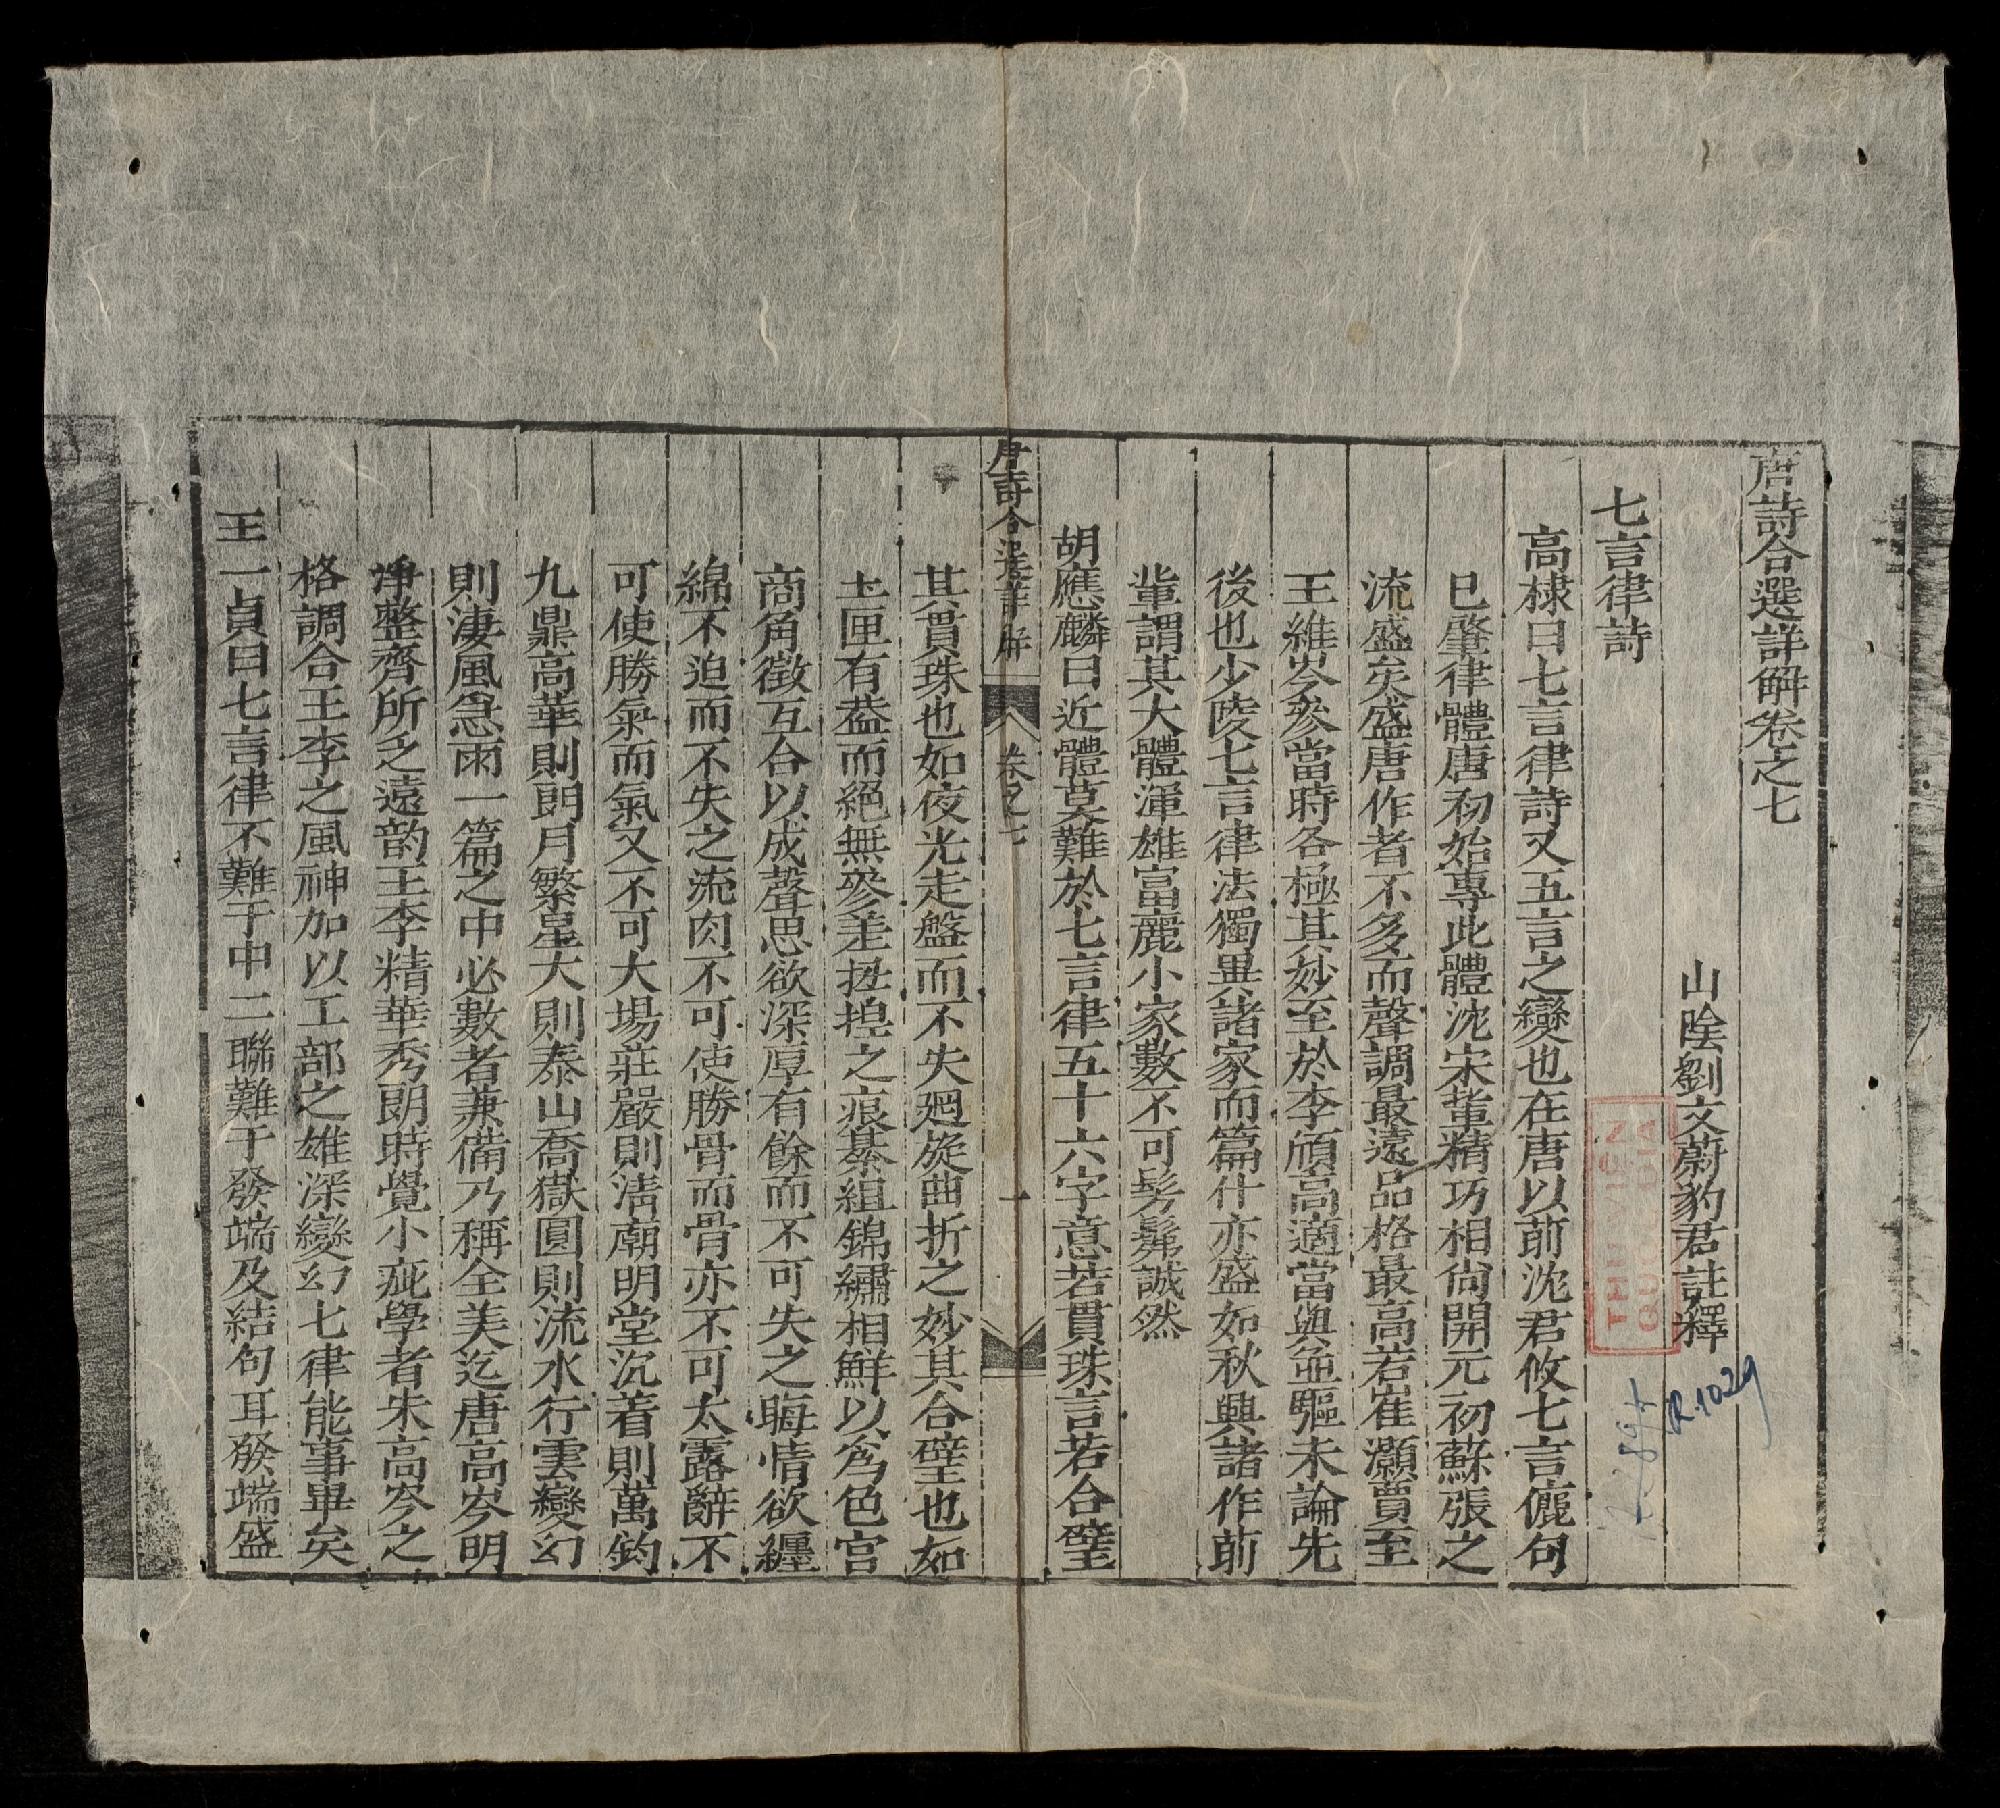 唐詩合選詳解卷之七
山陰劉文蔚豹君註釋
七言律詩
高棅曰七言律詩又五言之變也在唐以前沈君攸七言儷句
已肇律體唐初始專此體沈宋軰精巧相尙開元初蘇張之
流盛矣盛唐作者不多而聲調最遠品格最高若崔灝賈至
王維岑參當時各極其妙至於李頎高適當與並驅未論先
後也少陵七言律法獨異諸家而篇什亦盛如秋興諸作前
軰謂其大體渾雄富麗小家數不可髣髴誠然
胡應麟曰近體莫難於七言律五十六字意若貫珠言若合璧
唐詩合選詳解
卷之七
一
其貫珠也如夜光走盤而不失廻旋曲折之妙其合璧也如
玉匣有葢而絕無參差扭揑之痕綦組錦繡相鮮以爲色宫
商角徵互合以成聲思欲深厚有餘而不可失之晦情欲纏
綿不迫而不失之流肉不可使勝骨而骨亦不可太露辭不
可使勝氣而氣又不可大塲莊嚴則淸廟明堂沉着則萬鈞
九鼎高華則朗月繁星大則泰山喬嶽圓則流水行雲變幻
則淒風急雨一篇之中必數者兼備乃稱全美迄唐高岑明
淨整齊所乏遠韵王李精華秀朗時覺小疵學者朱高岑之
格調合王李之風神加以工部之雄深變幻七律能事畢矣
王一貞曰七言律不難于中二聯難于發端及結句耳發端盛
THU VIEN
QUOC GIA
R.1029